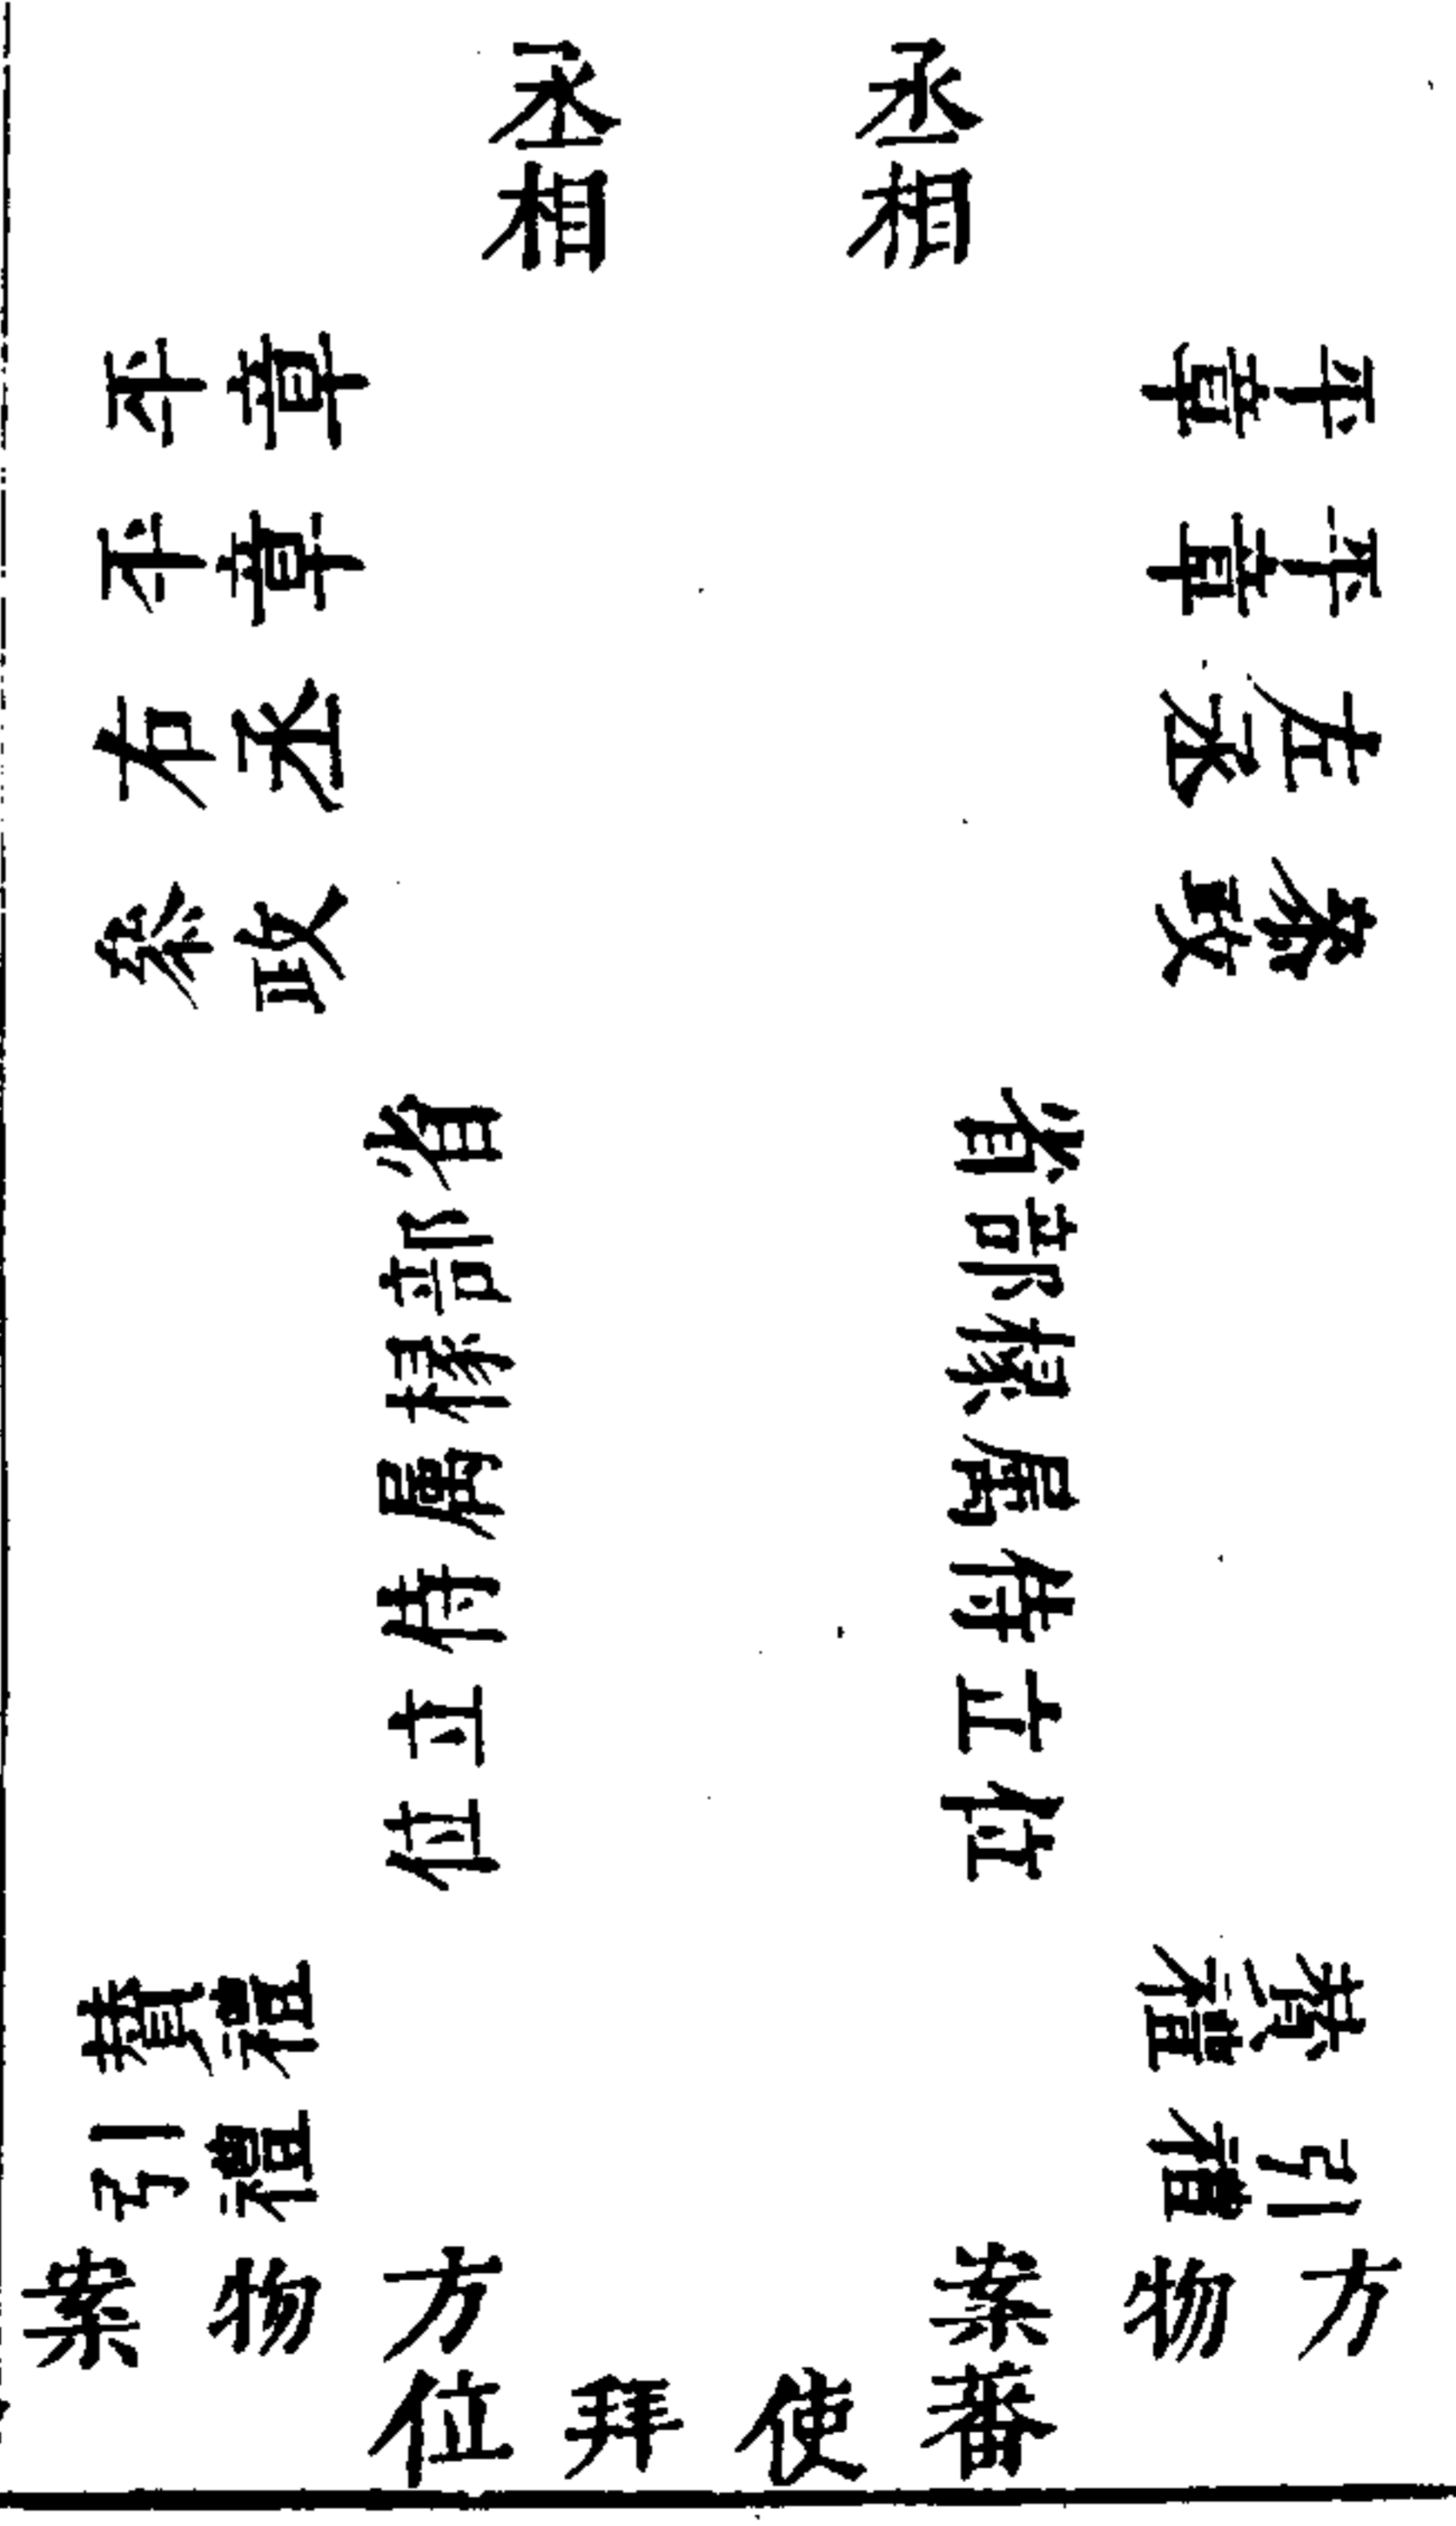 丞相
丞相
平章
平章
左丞
參政
平章
平章
右丞
參政
省部掾属侍立位
省部掾属侍立位
贊禮
引禮
贊禮
引禮
方物案
方物案
蕃使拜位